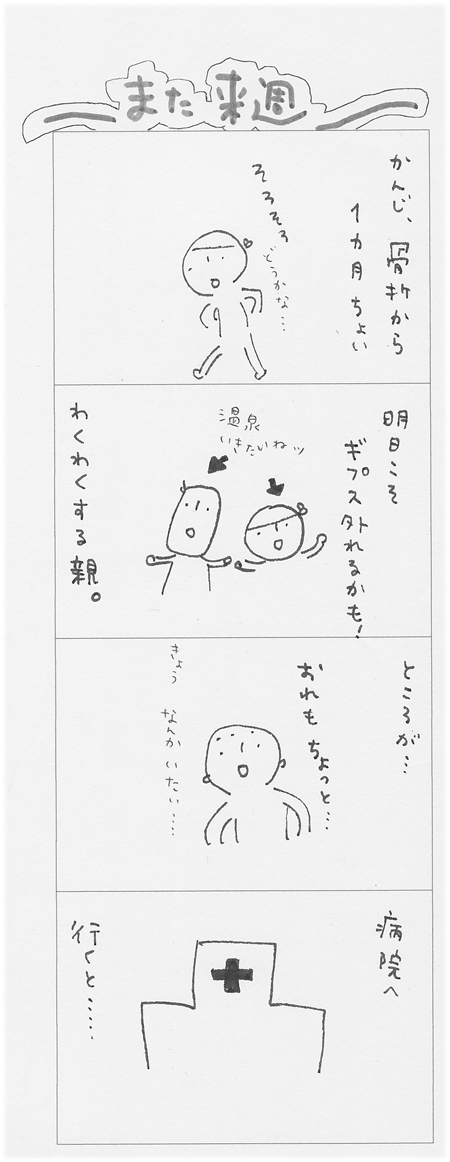 また来週
かんじ、骨折から
1カ月ちょい
そろそろ
どうかな…
明日こそ
ギプス外れるかも!
温泉
いきたいねッ
わくわくする親。
ところが…
おれもちょっと…
きょう
なんかいたい….
病院へ
行くと……